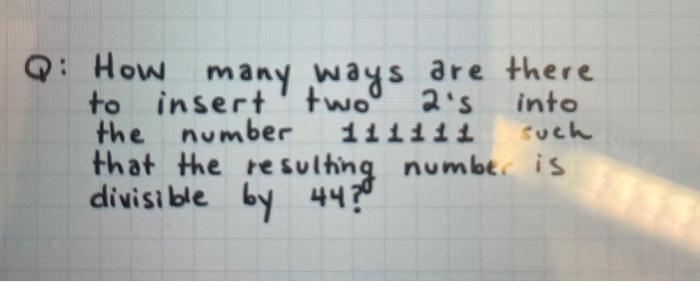 Q: How many ways are there
to insert two 2's into
the number 111111 such
that the resulting number is
divisible by 44?